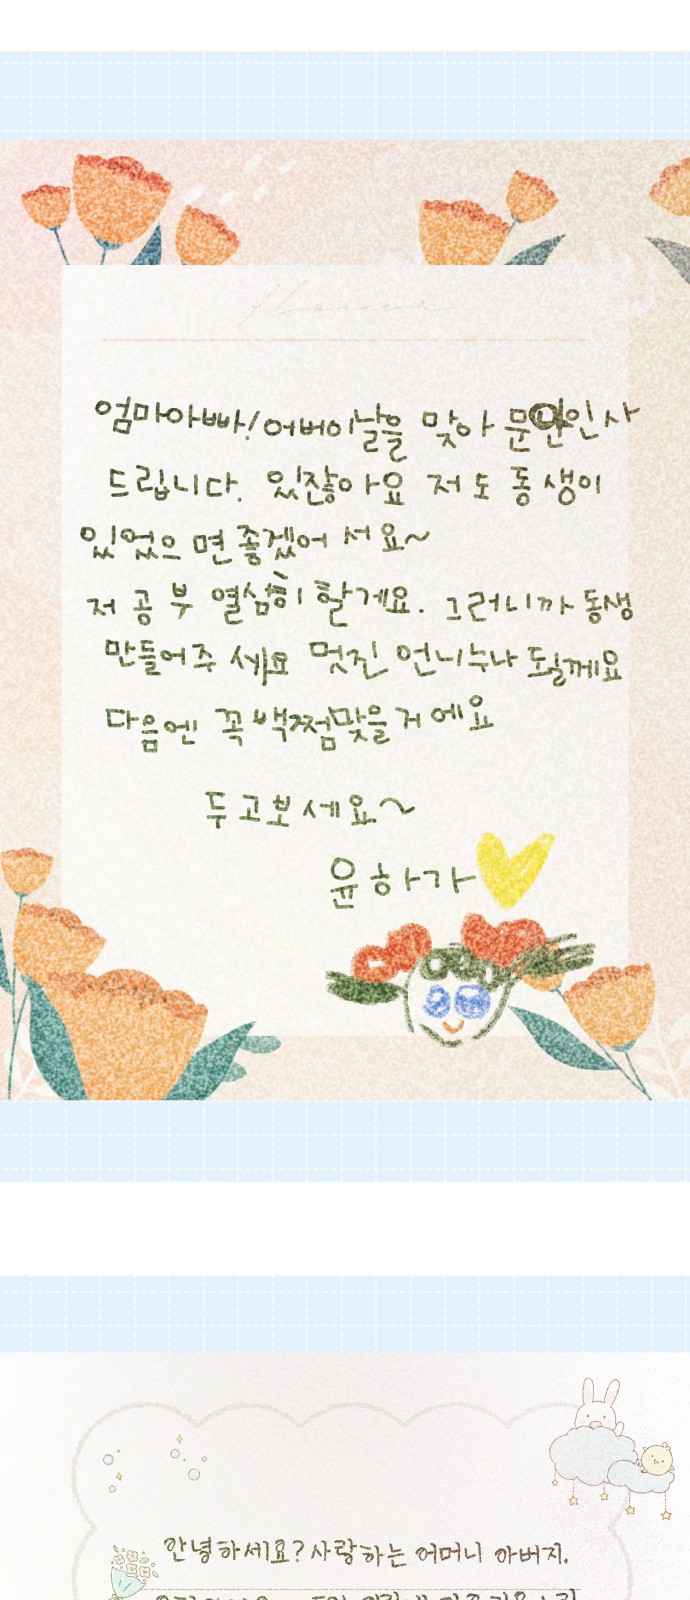 엄마아빠! 어버이날을 맞아 문안인사
드립니다. 있잖아요 저도 동생이
있었으면 좋겠어서요~
저 공부 열심히 할게요. 그러니까 동생
만들어주세요 멋진 언니누나 될께요
다음엔 꼭 백쩜맞을거에요
두고보세요~
윤하가
안녕하세요? 사랑하는 어머니 아버지.